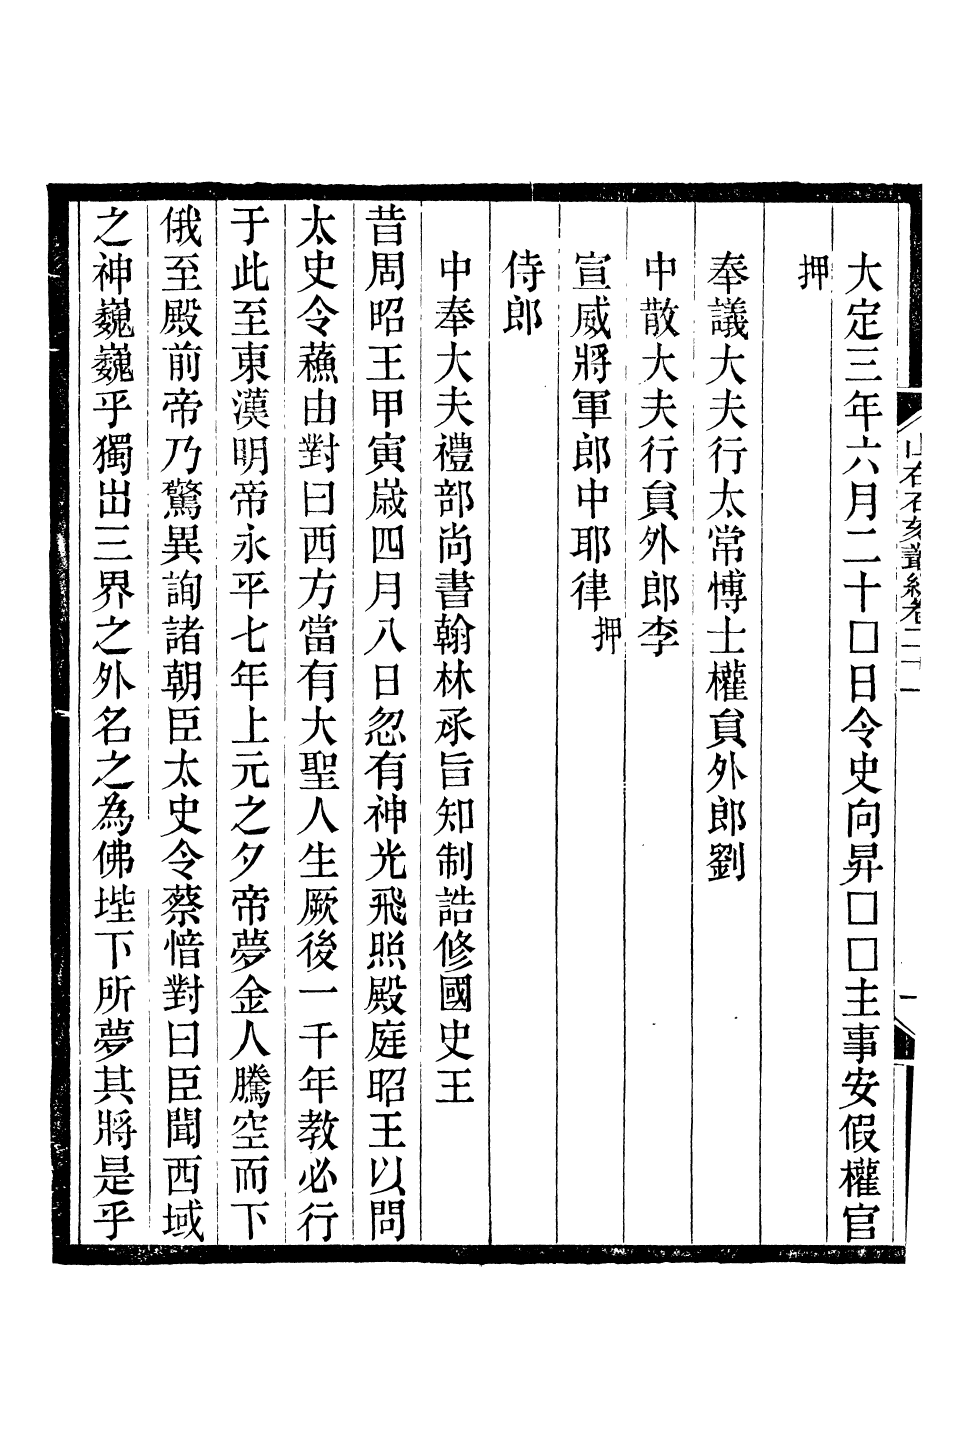 大定三年六月二十□日令史向昇□□主事安假權官
押
奉議大夫行太常博士權員外郎劉
中散大夫行員外郎李
宣威將軍郎中耶律押
侍郎
中奉大夫禮部尚書翰林承旨知制誥修國史王
昔周昭王甲寅歳四月八日忽有神光飛照殿庭昭王以問
太史令蘓由對曰西方當有大聖人生厥後一千年教必行
于此至東漢明帝永平七年上元之夕帝夢金人騰空而下
俄至殿前帝乃驚異詢諸朝臣太史令蔡愔對曰臣聞西域
之神巍巍乎獨出三界之外名之為佛陛下所夢其將是乎
山右石刻叢編卷二十
一